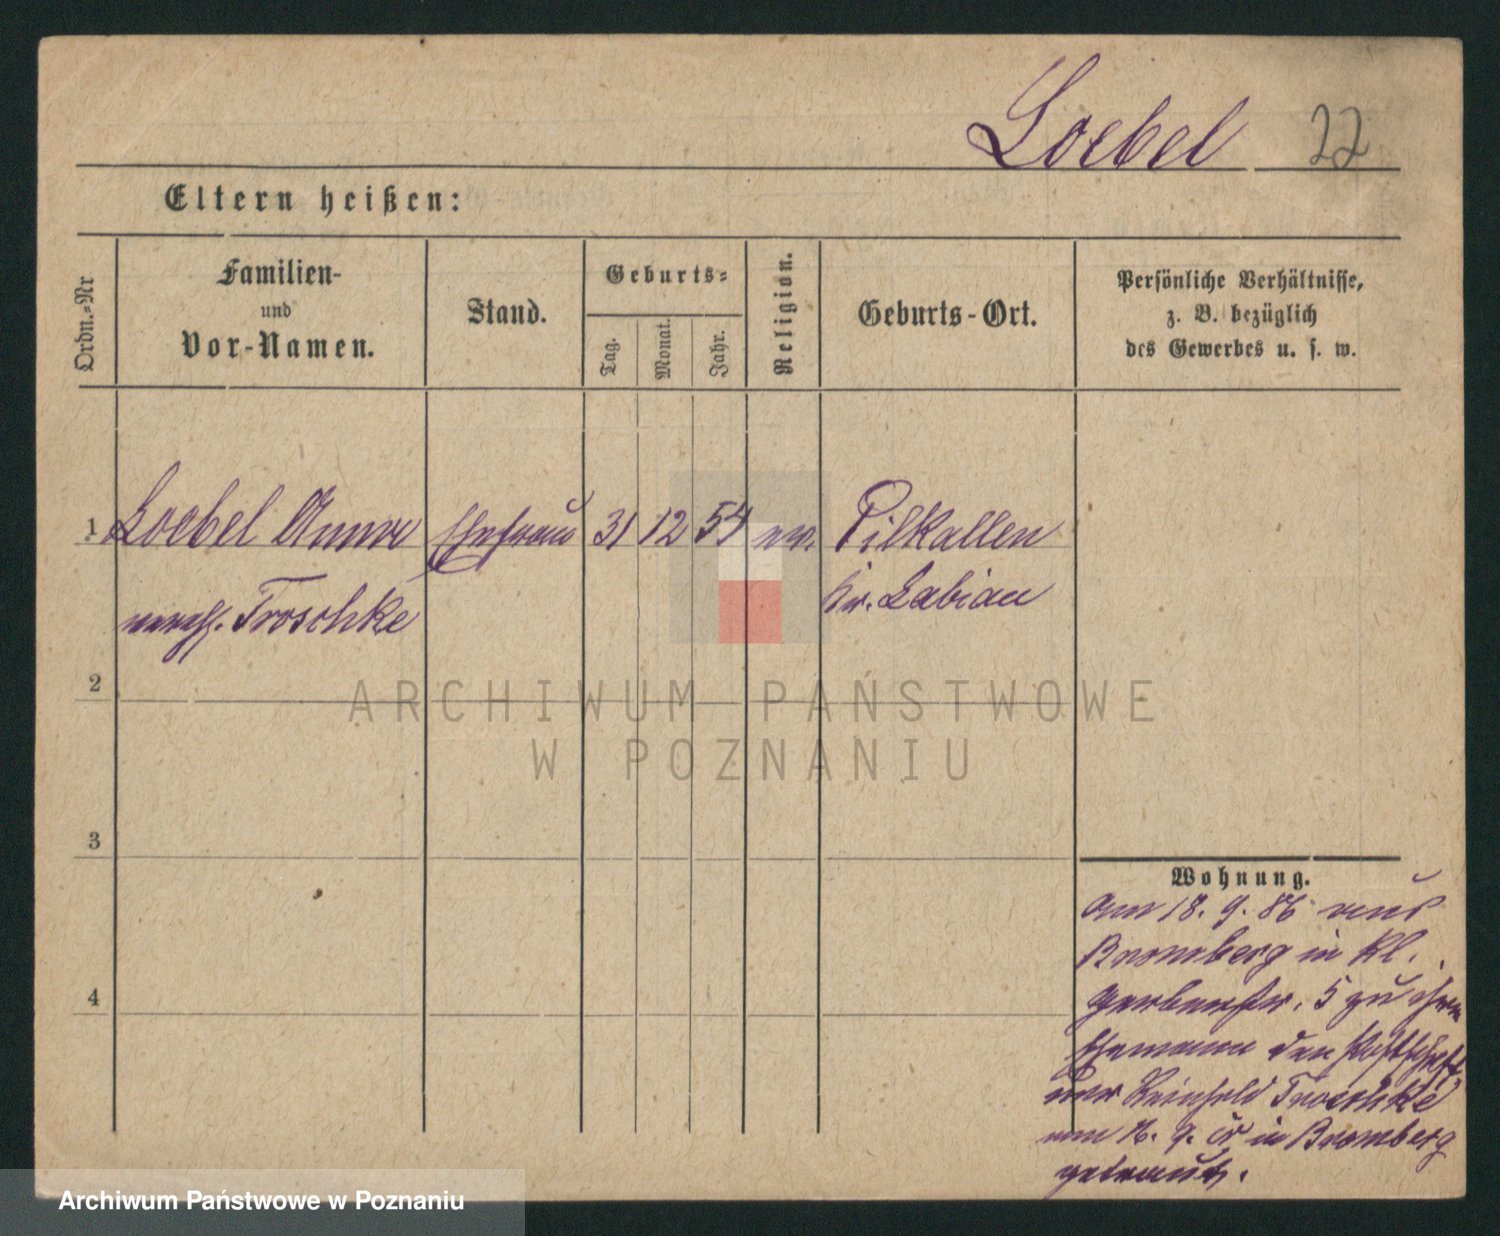 Loebel 22
Eltern heißen:
Ordn.-Nr
Familien-
und
Vor-Namen.
Stand.
Geburts-
Tag.
Monat.
Jahr.
Religion.
Geburts-Ort.
Persönliche Verhältnisse,
z. B. bezüglich
des Gewerbes u. s. w.
1 Loebel Anna Ehefrau 31 12 54 ev. Pilkallen
verehl. Troschke Kr. Labiau
2
3
4
Wohnung.
Am 18. 9. 86 aus
Bromberg in Kl.
Gerberstr. 5 zu ihrem
Ehemann den
Reinhold Troschke
am 16. 9. cr in Bromberg
getraut.
ARCHIWUM PAŃSTWOWE
W POZNANIU
Archiwum Państwowe w Poznaniu